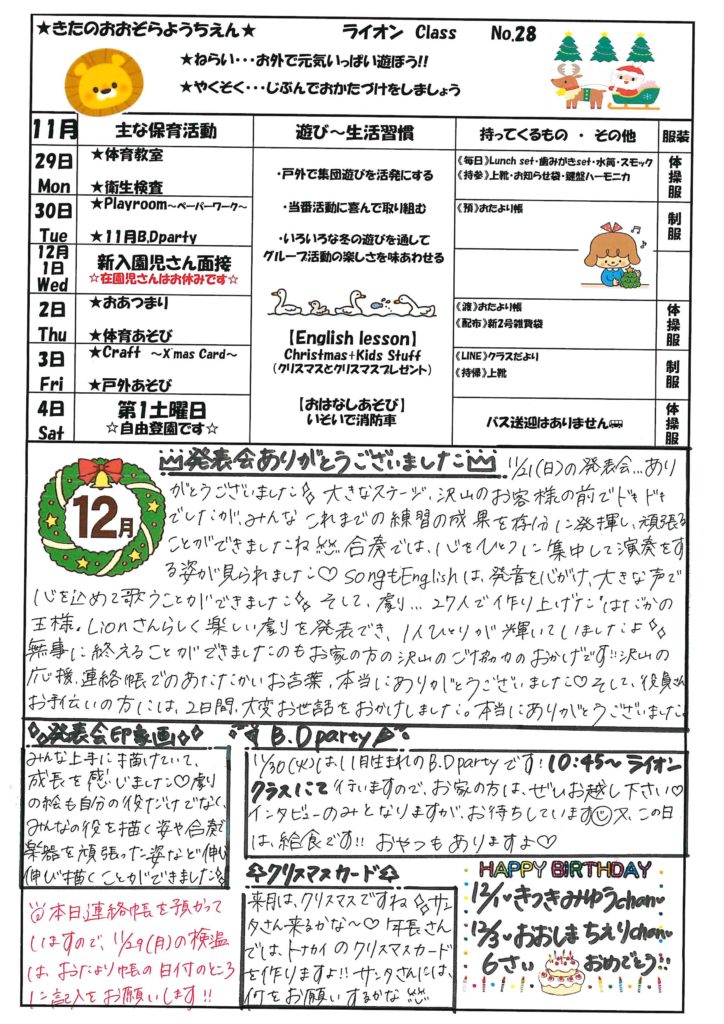 ★きたのおおぞらようちえん★　ライオン Class　No.28
★ねらい･･･お外で元気いっぱい遊ぼう!!
★やくそく･･･じぶんでおかたづけをしましょう
11月　主な保育活動　遊び～生活習慣　持ってくるもの ・ その他　服装
29日 Mon
★体育教室
★衛生検査
30日 Tue
★Playroom～ペーパーワーク～
★11月B.Dparty
12月1日 Wed
新入園児さん面接
☆在園児さんはお休みです☆
2日 Thu
★おあつまり
★体育あそび
3日 Fri
★Craft ～X'mas Card～
★戸外あそび
4日 Sat
第1土曜日
☆自由登園です☆
・戸外で集団遊びを活発にする
・当番活動に喜んで取り組む
・いろいろな冬の遊びを通して
グループ活動の楽しさを味あわせる
【English lesson】
Christmas+Kids Stuff
(クリスマスとクリスマスプレゼント)
【おはなしあそび】
いそいで消防車
《毎日》Lunch set・歯みがきset・水筒・スモック
《持参》上靴・お知らせ袋・鍵盤ハーモニカ
体操服
《預》おたより帳
制服
《渡》おたより帳
《配布》新2号雑費袋
体操服
《LINE》クラスだより
《持帰》上靴
制服
バス送迎はありません
体操服
12月
発表会ありがとうございました
11/21(日)の発表会…あり
がとうございました 大きなステージ、沢山のお客様の前でドキドキ
でしたが、みんなこれまでの練習の成果を存分に発揮し、頑張る
ことができましたね 合奏では、心をひとつに集中して演奏をす
る姿が見られました♡ songもEnglishは、発音を心がけ、大きな声で
心を込めて歌うことができました そして、劇… 27人で作り上げた"はだかの
王様。Lionさんらしく楽しい劇を発表でき、1人ひとりが輝いていましたよ
無事に終えることができましたのもお家の方の沢山のご協力のおかげです!!沢山の
応援、連絡帳でのあたたかいお言葉、本当にありがとうございました♡そして、役員さん
お手伝いの方には、2日間、大変お世話をおかけしました。本当にありがとうございました。
発表会印象画
みんな上手に描けていて、
成長を感じました♡劇
の絵も自分の役だけでなく、
みんなの役を描く姿や合奏で
楽器を頑張った姿など伸び
伸び描くことができました
B.Dparty
11/30(火)は、11月生まれのB.Dpartyです! 10:45～ライオン
クラスにて行いますので、お家の方は、ぜひお越し下さい♡
インタビューのみとなりますが、お待ちしています 又、この日
は、給食です!! おやつもありますよ♡
本日連絡帳を預かって
いますので、11/29(月)の検温
は、おたより帳の日付のところ
に記入をお願いします!!
クリスマスカード
来月は、クリスマスですね サン
タさん来るかな～♡ 年長さん
では、トナカイのクリスマスカード
を作りますよ!! サンタさんには、
何をお願いするかな
HAPPY BiRTHDAY
12/1♥きつきみゆうchan♥
12/3♥おおしまちえりchan♥
6さい　おめでとう!!